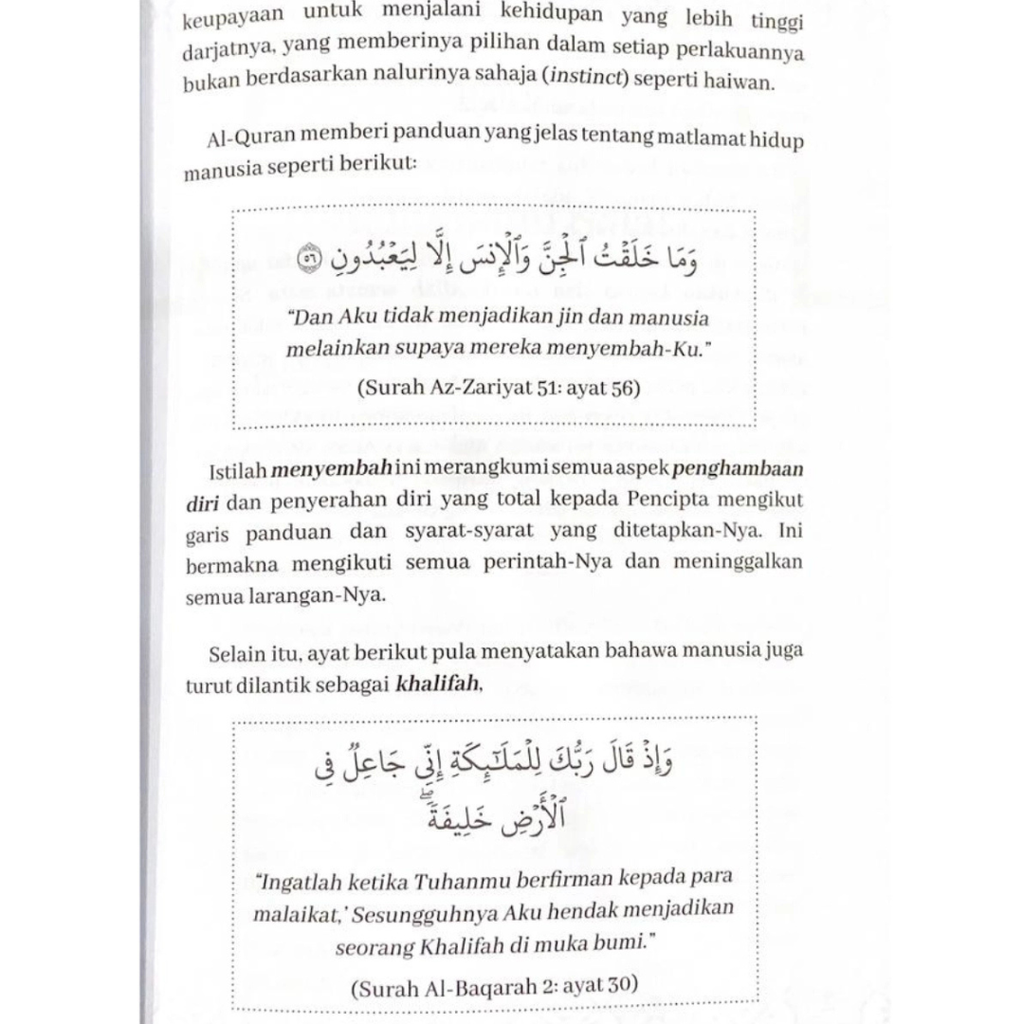 keupayaan untuk menjalani kehidupan yang lebih tinggi
darjatnya, yang memberinya pilihan dalam setiap perlakuannya
bukan berdasarkan nalurinya sahaja (instinct) seperti haiwan.
Al-Quran memberi panduan yang jelas tentang matlamat hidup
manusia seperti berikut:
وَمَا خَلَقْتُ ٱلْجِنَّ وَٱلْإِنسَ إِلَّا لِيَعْبُدُونِ ٥٦
“Dan Aku tidak menjadikan jin dan manusia
melainkan supaya mereka menyembah-Ku.”
(Surah Az-Zariyat 51: ayat 56)
Istilah menyembah ini merangkumi semua aspek penghambaan
diri dan penyerahan diri yang total kepada Pencipta mengikut
garis panduan dan syarat-syarat yang ditetapkan-Nya. Ini
bermakna mengikuti semua perintah-Nya dan meninggalkan
semua larangan-Nya.
Selain itu, ayat berikut pula menyatakan bahawa manusia juga
turut dilantik sebagai khalifah,
وَإِذْ قَالَ رَبُّكَ لِلْمَلَٰٓئِكَةِ إِنِّي جَاعِلٌ فِي
ٱلْأَرْضِ خَلِيفَةً ۖ
“Ingatlah ketika Tuhanmu berfirman kepada para
malaikat,’ Sesungguhnya Aku hendak menjadikan
seorang Khalifah di muka bumi.”
(Surah Al-Baqarah 2: ayat 30)